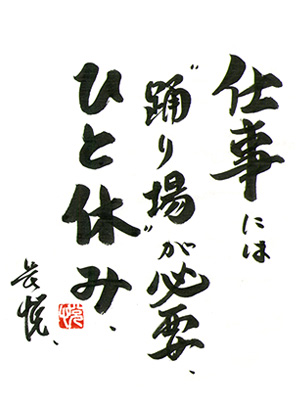 仕事には
〝踊り場〟が必要、
ひと休み、
長悦、
悦